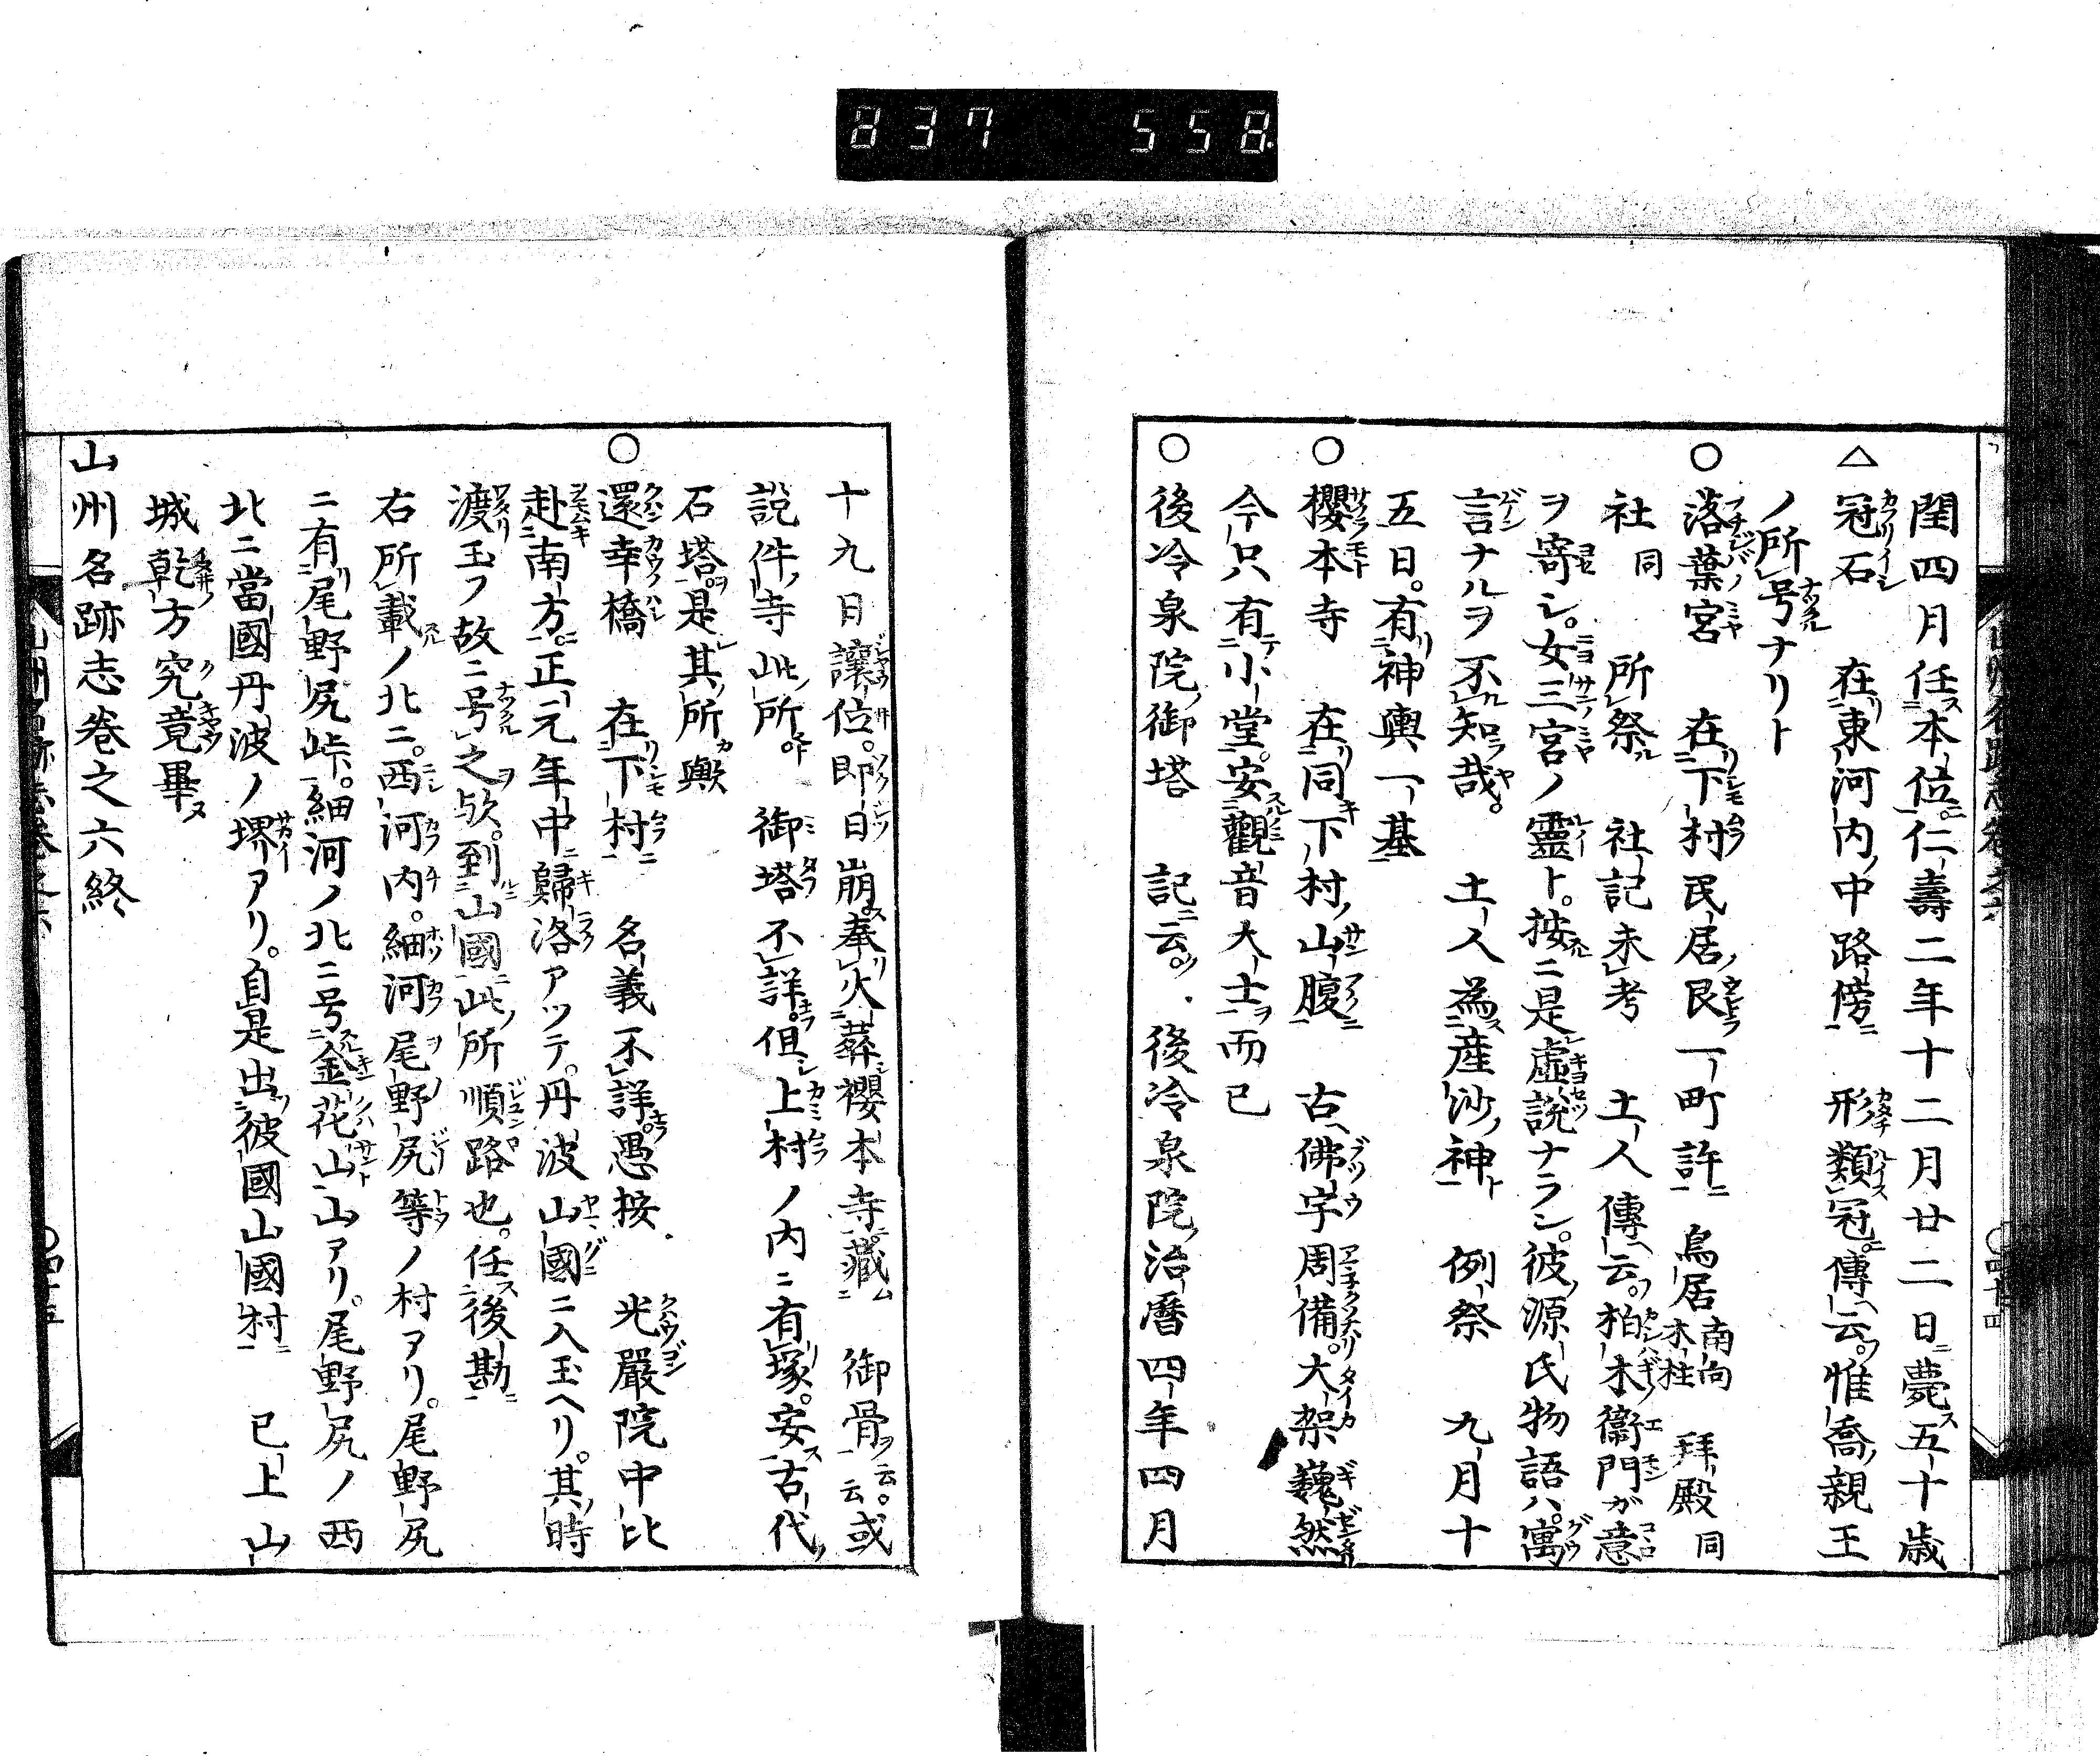 837 558
閏四月任本位仁壽二年十二月廿二日薨五十歳
△冠石 在東河内中路傍 形類冠傳云惟喬親王
ノ所号ナリト
○落葉宮 在下村民居艮一町許 鳥居南向木柱 拜殿同
社同 所祭 社記未考 土人傳云柏木衞門ガ意
ヲ寄シ。女三宮ノ靈ト。按ニ是虚說ナラン。彼源氏物語ハ。寓
言ナルヲ不知哉。 土人為産沙神 例祭 九月十
五日。有神輿一基
○櫻本寺 在同下村山腹 古佛宇周備。大架巍然
今只有小堂。安觀音大士而已
○後冷泉院御塔 記云。後冷泉院治曆四年四月
十九日讓位。即日崩奉火葬櫻本寺藏 御骨云云。或
說件寺此所。 御塔不詳。但上村ノ内ニ有塚。安古代
石塔。是其所歟
○還幸橋 在下村 名義不詳。愚按 光嚴院中比
赴南方。正元年中歸洛アツテ。丹波山國ニ入玉ヘリ。其時
渡玉フ故ニ号之欤。到山國此所順路也。任後勘
右所載ノ北ニ。西河内。細河尾野尻等ノ村アリ。尾野尻
ニ有尾野尻峠。細河ノ北ニ号金花山山アリ。尾野尻ノ西
北ニ當國丹波ノ堺アリ。自是出彼國山國村 已上山
城乾方究竟畢
山州名跡志卷之六終